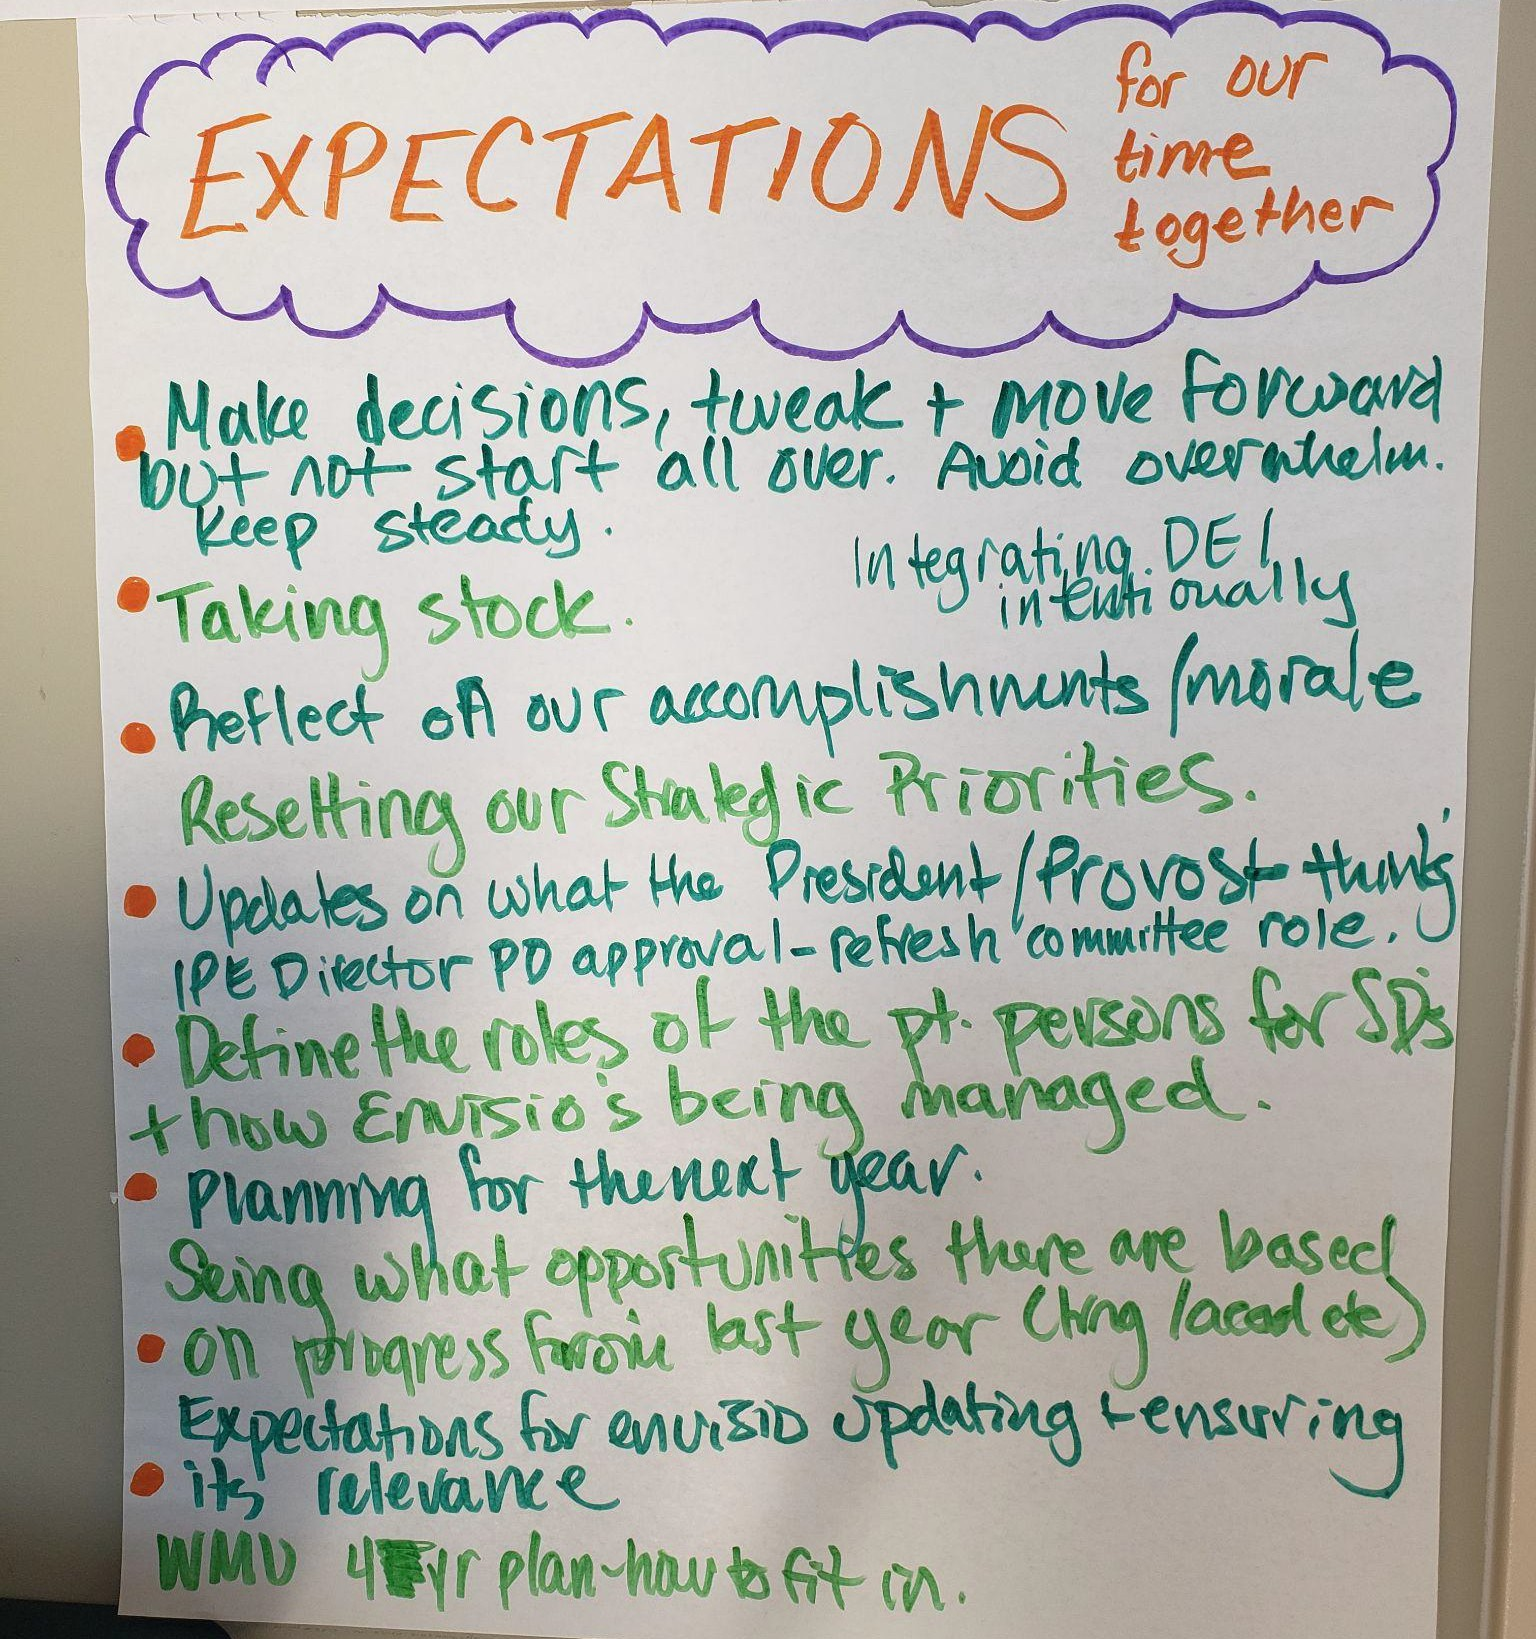 EXPECTATIONS for our
time
together
• Make decisions, tweak + move forward
but not start all over. Avoid overwhelm.
Keep steady.
Integrating DEI
intentionally
• Taking stock.
• Reflect on our accomplishments/morale
Resetting our Strategic Priorities.
• Updates on what the President/Provost think's
IPE Director PD approval - refresh committee role.
• Define the roles of the pt. persons for SD's
+ how Envisio's being managed.
• Planning for the next year.
Seing what opportunities there are based
• on progress from last year (hrng/acad etc)
Expectations for envisio updating + ensuring
• its relevance
WMU 4 yr plan - how to fit in.